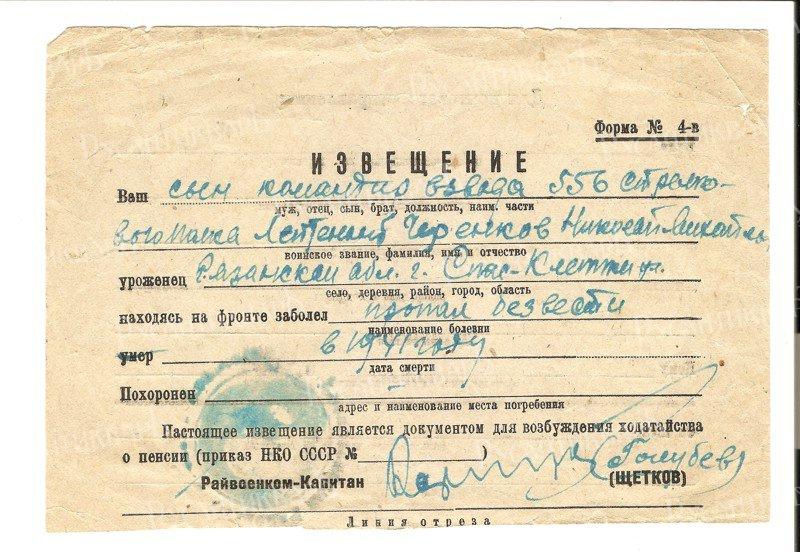 Форма № 4-в
ИЗВЕЩЕНИЕ
Ваш сын командир взвода 556 стрелко-
муж, отец, сын, брат, должность, наим. части
вого полка Лейтенант Черенков Николай Михайлов.
воинское звание, фамилия, имя и отчество
уроженец Рязанской обл. г. Спас-Клепики
село, деревня, район, город, область
находясь на фронте заболел пропал безвести
наименование болезни
умер в 1941 году
дата смерти
Похоронен -
адрес и наименование места погребения
Настоящее извещение является документом для возбуждения ходатайства
о пенсии (приказ НКО СССР № )
Райвоенком-Капитан (Голубев)
(ЩЕТКОВ)
Линия отреза